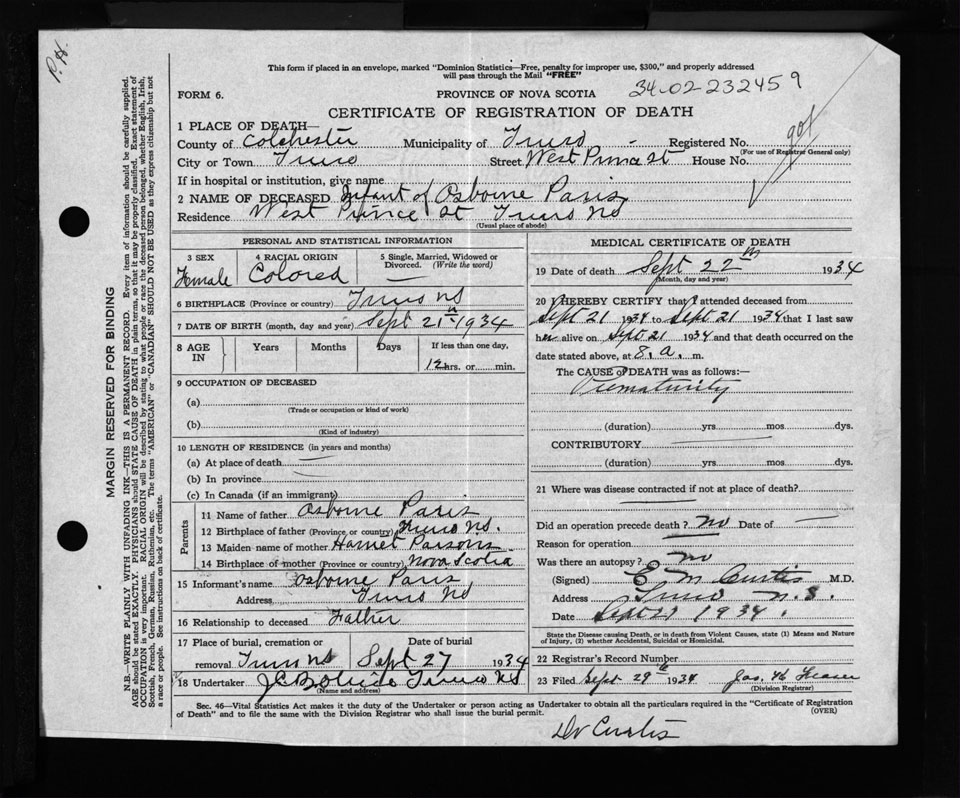 P. H.
This form if placed in an envelope, marked "Dominion Statistics—Free, penalty for improper use, $300," and properly addressed
will pass through the Mail "FREE"
34-02-232459
FORM 6. PROVINCE OF NOVA SCOTIA
CERTIFICATE OF REGISTRATION OF DEATH
1 PLACE OF DEATH—
County of Colchester Municipality of Truro Registered No.
(For use of Registrar General only)
City or Town Truro Street West Prince st House No.
If in hospital or institution, give name
2 NAME OF DECEASED Infant of Osborne Paris
Residence West Prince St Truro NS
(Usual place of abode)
PERSONAL AND STATISTICAL INFORMATION
3 SEX 4 RACIAL ORIGIN 5 Single, Married, Widowed or Divorced. (Write the word)
Female Colored —
6 BIRTHPLACE (Province or country) Truro NS
7 DATE OF BIRTH (month, day and year) Sept 21 1934
8 AGE IN Years Months Days If less than one day,
12 hrs. or min.
9 OCCUPATION OF DECEASED
(a)
(Trade or occupation or kind of work)
(b)
(Kind of industry)
10 LENGTH OF RESIDENCE (in years and months)
(a) At place of death
(b) In province
(c) In Canada (if an immigrant)
Parents
11 Name of father Osborne Paris
12 Birthplace of father (Province or country) Truro NS.
13 Maiden name of mother Harriet Parsons
14 Birthplace of mother (Province or country) Nova Scotia
15 Informant's name Osborne Paris
Address Truro NS
16 Relationship to deceased Father
17 Place of burial, cremation or removal Truro NS Date of burial Sept 27 1934
18 Undertaker Truro NS
(Name and address)
MEDICAL CERTIFICATE OF DEATH
19 Date of death Sept 22 1934
(Month, day and year)
20 I HEREBY CERTIFY that I attended deceased from
Sept 21 1934 to Sept 21 1934 that I last saw
her alive on Sept 21 1934 and that death occurred on the
date stated above, at 8. a. m.
The CAUSE of DEATH was as follows:—
Prematurity
(duration) yrs mos dys.
CONTRIBUTORY
(duration) yrs. mos. dys.
21 Where was disease contracted if not at place of death?
Did an operation precede death? no Date of —
Reason for operation
Was there an autopsy? no
(Signed) E M Curtis M.D.
Address Truro N.S.
Date Sept 27 1934.
State the Disease causing Death, or in death from Violent Causes, state (1) Means and Nature
of Injury, (2) whether Accidental, Suicidal or Homicidal.
22 Registrar's Record Number
23 Filed Sept 29th 1934 Jas. H
(Division Registrar)
Sec. 46—Vital Statistics Act makes it the duty of the Undertaker or person acting as Undertaker to obtain all the particulars required in the "Certificate of Registration
of Death" and to file the same with the Division Registrar who shall issue the burial permit. (OVER)
Dr Curtis
MARGIN RESERVED FOR BINDING
N.B.—WRITE PLAINLY WITH UNFADING INK—THIS IS A PERMANENT RECORD. Every item of information should be carefully supplied.
AGE should be stated EXACTLY. PHYSICIANS should STATE CAUSE OF DEATH in plain terms, so that it may be properly classified. Exact statement of
OCCUPATION is very important. RACIAL ORIGIN will be described by stating to what people or race the deceased person belonged, whether English, Irish,
Scottish, French, German, Russian, Ruthenian, etc. The terms "AMERICAN" or "CANADIAN" SHOULD NOT BE USED as they express citizenship but not
a race or people. See instructions on back of certificate.